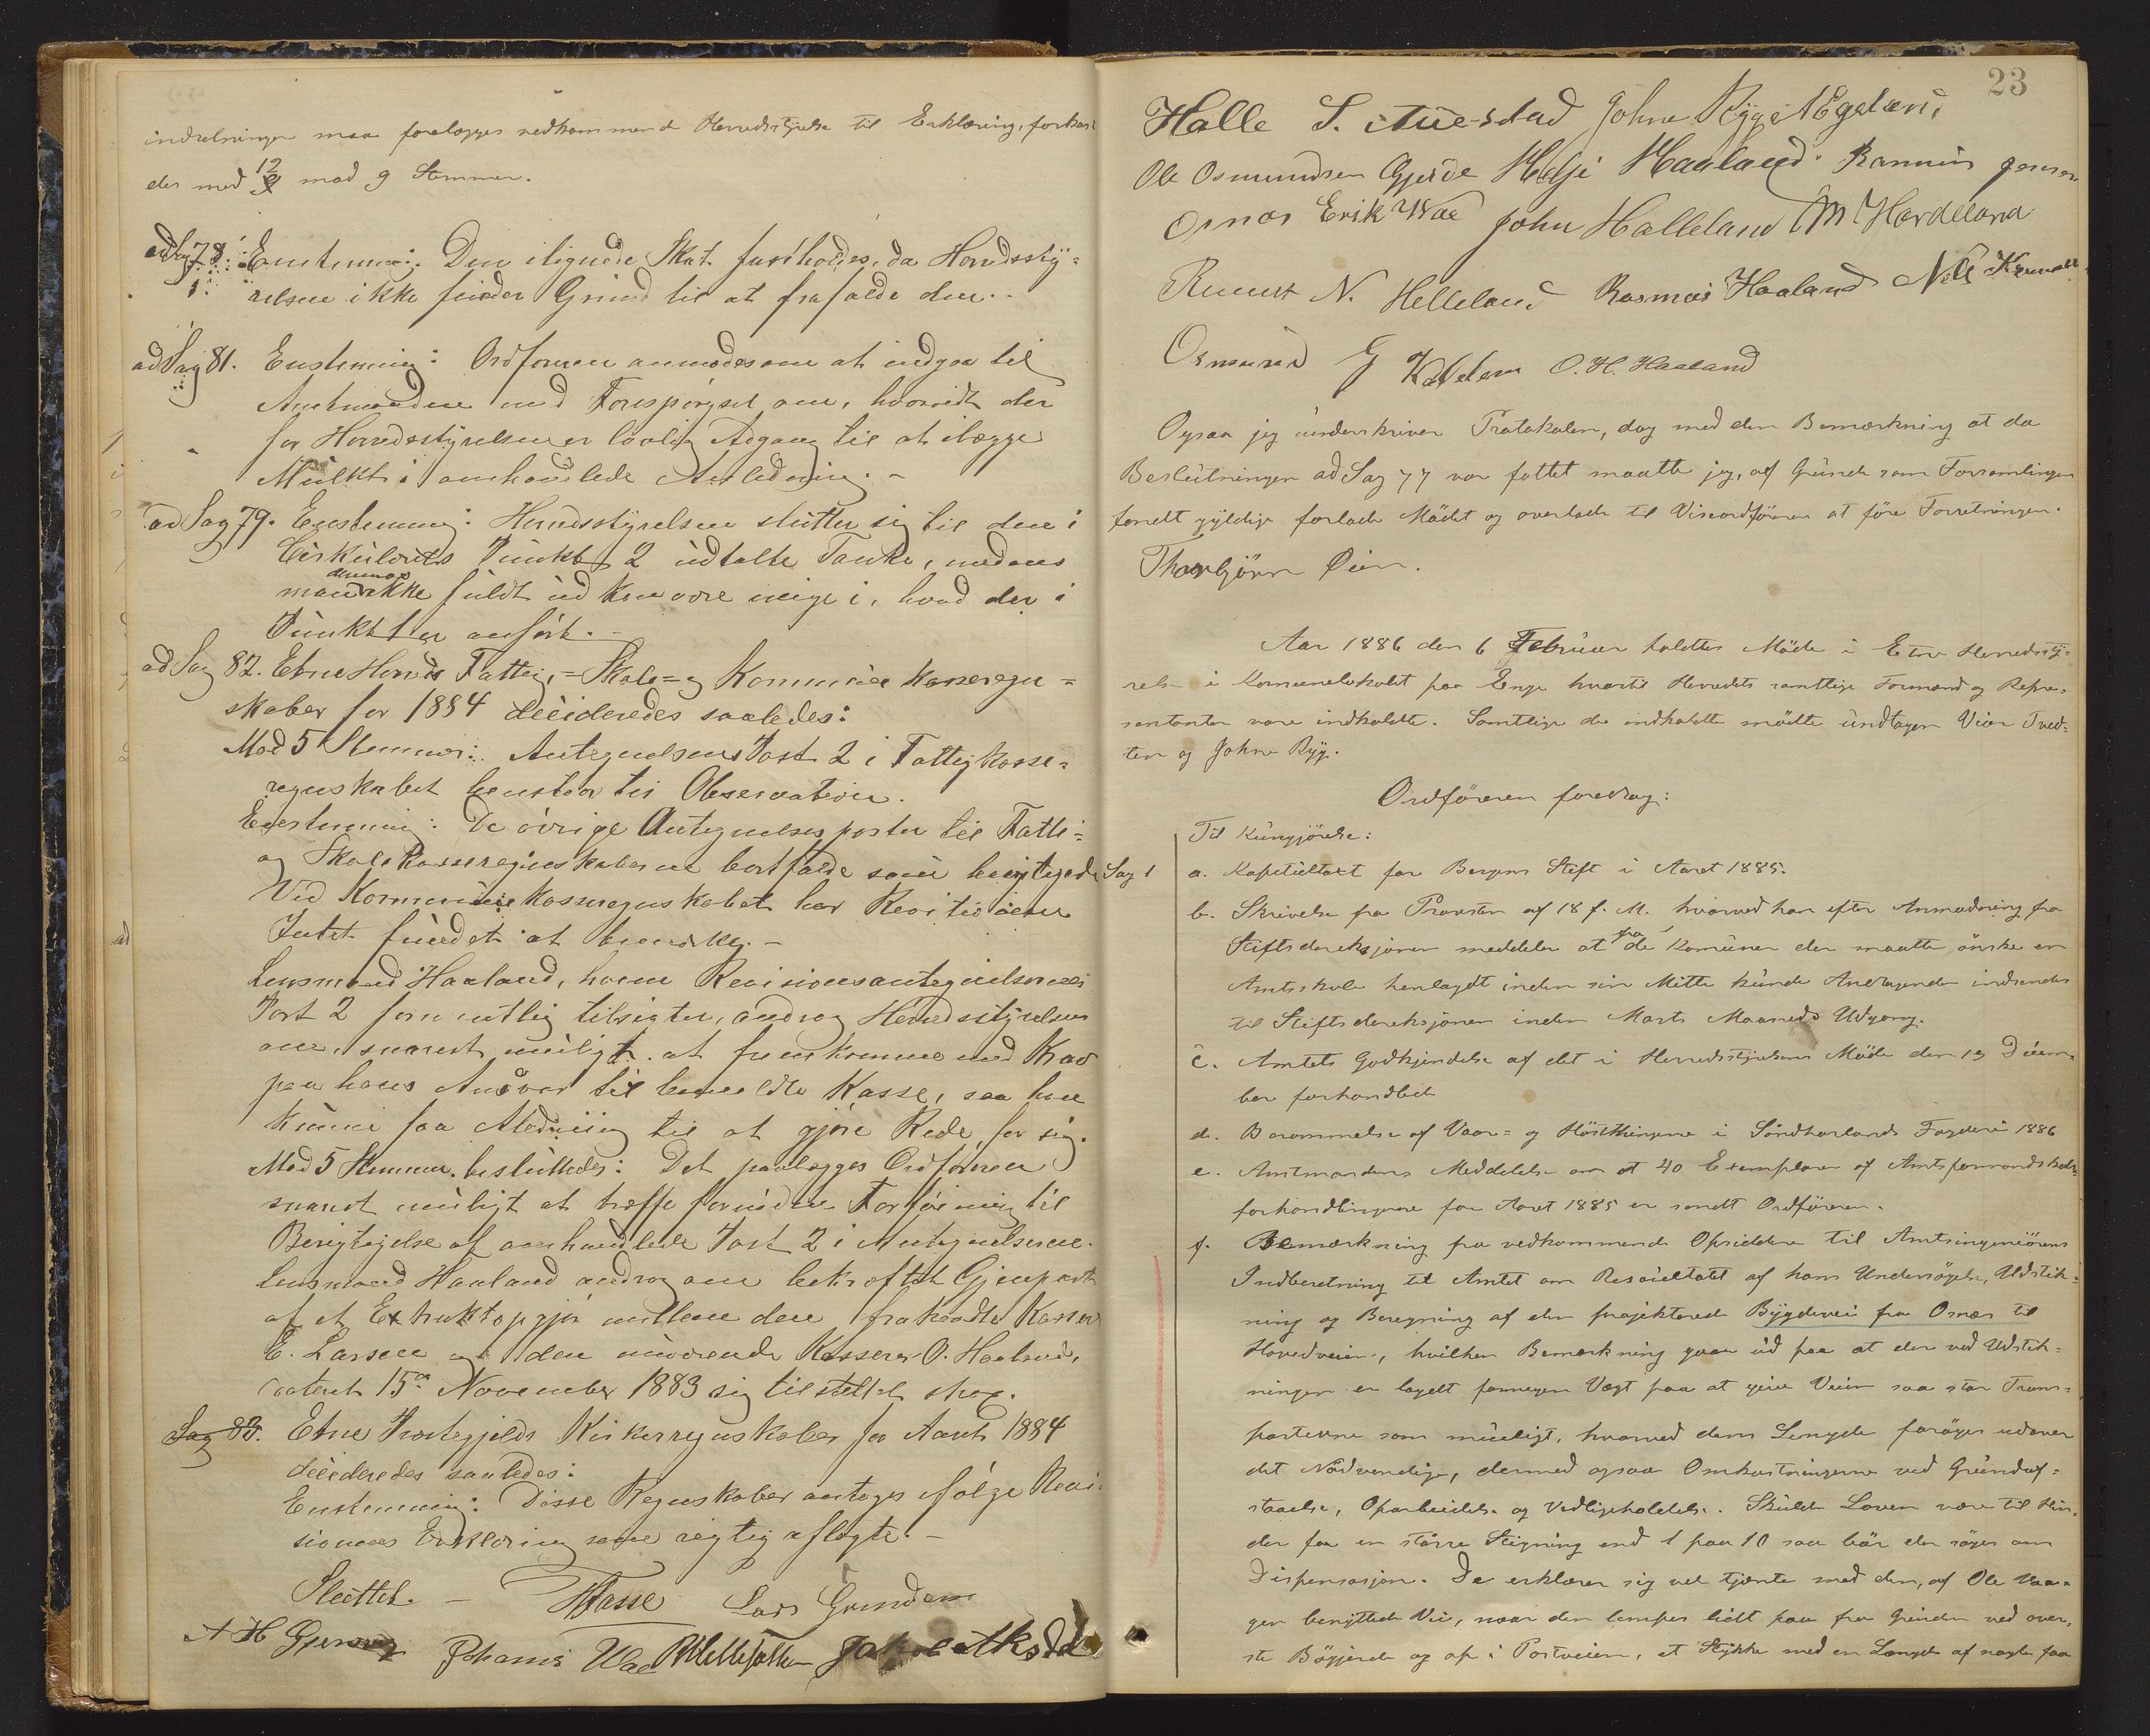 indretningen maa forelægges vedkommende Herredsstyrelse til Erklæring, forkas-
des med 12 mod 9 Stemmer.
ad Sag 78. Enstemmig: Den ilignede Skat fastholdes, da Herredssty=
relsen ikke finder Grund til at frafalde den.
ad Sag 81. Enstemmig: Ordføreren anmodes om at indgaa til
Amtmanden med Forespørgsel om, hvorvidt der
for Herredsstyrelsen er lovlig Adgang til at ilægge
Mulkt i omhandlede Anledning. -
ad Sag 79. Enstemmig: Herredsstyrelsen slutter sig til den i
Cirkulærets Punkt 2 udtalte Tanke, medens
man derimod ikke fuldt ud kan være enige i, hvad der i
Punkt 1 er anført. -
ad Sag 82. Etne Herreds Fattig,= Skole= og Kommunekasseregn=
skaber for 1884 desideredes saaledes:
Mod 5 Stemmer: Antegnelsens Post 2 i Fattigkasse=
regnskabet henstaar til Observation.
Enstemmig: De øvrige Antegnelsesposter til Fattig=
og Skolekasseregnskaberne bortfalde som berigtigede
Ved Kommunekasseregnskabet har Revisionen
Intet fundet at bemærke. -
Lensmand Haaland, hvem Revisionsantegnelsernes
Post 2 formentlig tilsigter, androg Herredsstyrelsen
om, snarest muligt at fremkomme med Krav
paa hans Ansvar til bemeldte Kasse, saa han
kunne faa Anledning til at gjøre Rede for sig.
Mod 5 Stemmer besluttedes: Det paalægges Ordføreren
snarest muligt at træffe fornøden Forføining til
Berigtigelse af omhandlede Post 2 i Antegnelserne.
Lensmand Haaland androg om bekræftet Gjenpart
af et Extraktopgjør mellem den fratraadte Kasserer
E. Larsen og den nuværende Kasserer O. Haaland,
dateret 15de November 1883 sig tilstillet strax.
Sag 83. Etne Præstegjelds Kirkeregnskaber for Aaret 1884
desideredes saaledes:
Enstemmig: Disse Regnskaber antages ifølge Revi-
sionens Erklæring som rigtig aflagte. -
Sluttet. - Fasse Lars Grindem
A H Gjersvig Johannes Wae Jakob
23
Halle S. Johne Rygg Egeland
Ole Osmundsen Gjerde Helje Haaland Rasmus Jensen
Ornæs Erik Wae John Halleland M Hardeland
N. Helleland Rasmus Haaland Nils
Osmund G O. H. Haaland
Ogsaa jeg underskriver Protokolen, dog med den Bemærkning at da
Beslutningen ad Sag 77 var fattet maatte jeg, af Grunde som Forsamlingen
fandt gyldige forlade Mødet og overlade til Viceordføreren at føre Forretningen.
Thorbjörn Øien.
Aar 1886 den 6 Februar holdtes Møde i Etne Herredssty=
relse i Komunelokalet paa Enge hvortil Herredets samtlige Formænd og Repræ=
sentanter vare indkaldte. Samtlige de indkaldte mødte undtagen Tved-
ten og Johne Ryg.
Ordføreren foredrog:
Til Kungjørelse:
Sag 1 a. Kapiteltaxt for Bergens Stift i Aaret 1885.
b. Skrivelse fra Provsten af 18 f. M. hvorved han efter Anmodning fra
Stiftsdireksjonen meddeler at fra de Komuner der maatte ønske en
Amtsskole henlagdt inden sin Midte kunde Andragende indsendes
til Stiftsdireksjonen inden Marts Maaneds Udgang.
c. Amtets Godkjendelse af det i Herredsstyrelsens Møde den 19 Decem-
ber forhandlede
d. Berammelse af Vaar= og Høstthingene i Søndhorlands Fogderi 1886
e. Amtmandens Meddelelse om at 40 Exemplarer af Amtsformandskabs-
forhandlingerne for Aaret 1885 er sendt Ordføreren.
f. Bemærkning fra vedkommende Opsiddere til Amtsingeniørens
Indberetning til Amtet om Resultatet af hans Undersøgelse, Udstik-
ning og Beregning af den projekterede Bygdevei fra Ornæs til
Hovedveien, hvilken Bemærkning gaar ud paa at der ved Udstik=
ningen er lagdt formegen Vægt paa at give Veien saa stor Trans=
portevne som muligt, hvorved dens Længde forøges udover
det Nødvendige, dermed ogsaa Omkostningerne ved Grundaf=
staaelse, Oparbeidelse og Vedligeholdelse. Skulde Loven være til Hin-
der for en større Stigning end 1 paa 10 saa bør der søges om
Dispensasjon. De erklærer sig vel tjente med den, af Ole Vaa=
gen benyttede Vei, naar den lempes lidt paa fra Grinden ved øver-
ste Bøgjerde og op i Postveien, et Stykke med en Længde af nogle faa